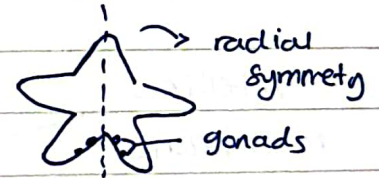 radial
symmety
gonads